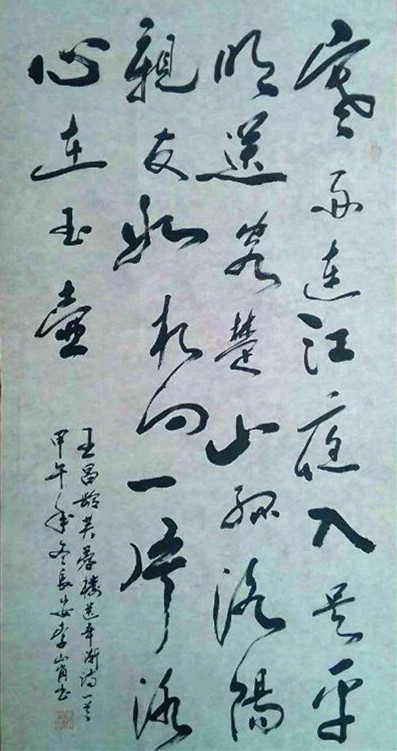 寒雨連江夜入吴平
明送客楚山孤洛陽
親友如相问一片冰
心在玉壶
王昌龄芙蓉楼送辛渐诗一首
甲午年冬长安李书